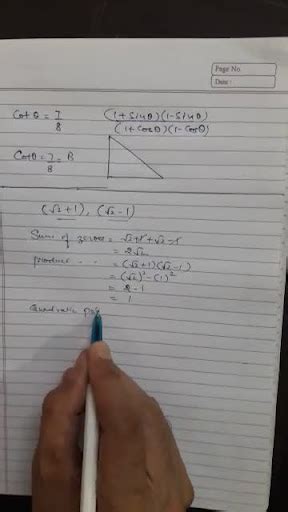 Page No.
Date :
Cot θ = 7/8
(1+Sinθ)(1-Sinθ)
(1+Cosθ)(1-Cosθ)
Cotθ = 7/8 = B
(√2+1), (√2-1)
Sum of zeroes = √2+1+√2-1
= 2√2
product .. .. = (√2+1)(√2-1)
= (√2)² - (1)²
= 2-1
= 1
Quadratic